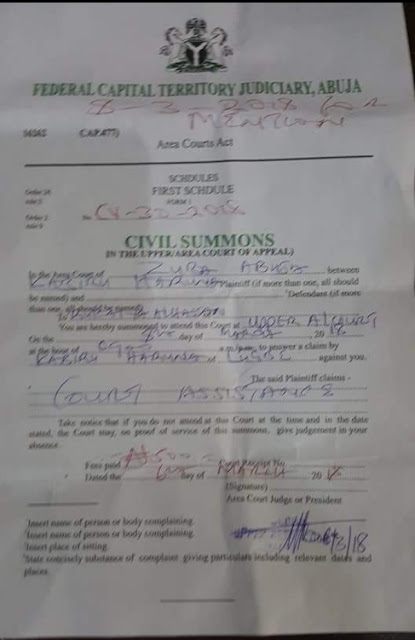 FEDERAL CAPITAL TERRITORY JUDICIARY, ABUJA
8-3-2018 for
MENTION
CAP.477)
Area Courts Act
SCHDULES
FIRST SCHDULE
FORM 1
No CV-32-2018
CIVIL SUMMONS
(IN THE UPPER/AREA COURT OF APPEAL)
In the Area Court of ZUBA ABUJA between
KABIRU HARUNA Plaintiff (if more than one, all should
be named) and "Defendant (if more
than one, all should be named)
To ALHASSAN
You are hereby summoned to attend this Court at UPPER A/COURT
On the 8th day of MARCH 2018
at the hour of 0900 to answer a claim by
KABIRU HARUNA of LUGBE against you.
The said Plaintiff claims -
COURT ASSISTANCE
Take notice that if you do not attend at this Court at the time and in the date
stated, the Court may, on proof of service of this summons, give judgement in your
absence.
Fees paid ₦500 Receipt No
Dated the 6th day of MARCH 2018
(Signature)
Area Court Judge or President
¹Insert name of person or body complaining.
²Insert name of person or body complaining.
³Insert place of sitting.
⁴State concisely substance of complaint giving particulars including relevant dates and
places.
6/3/18